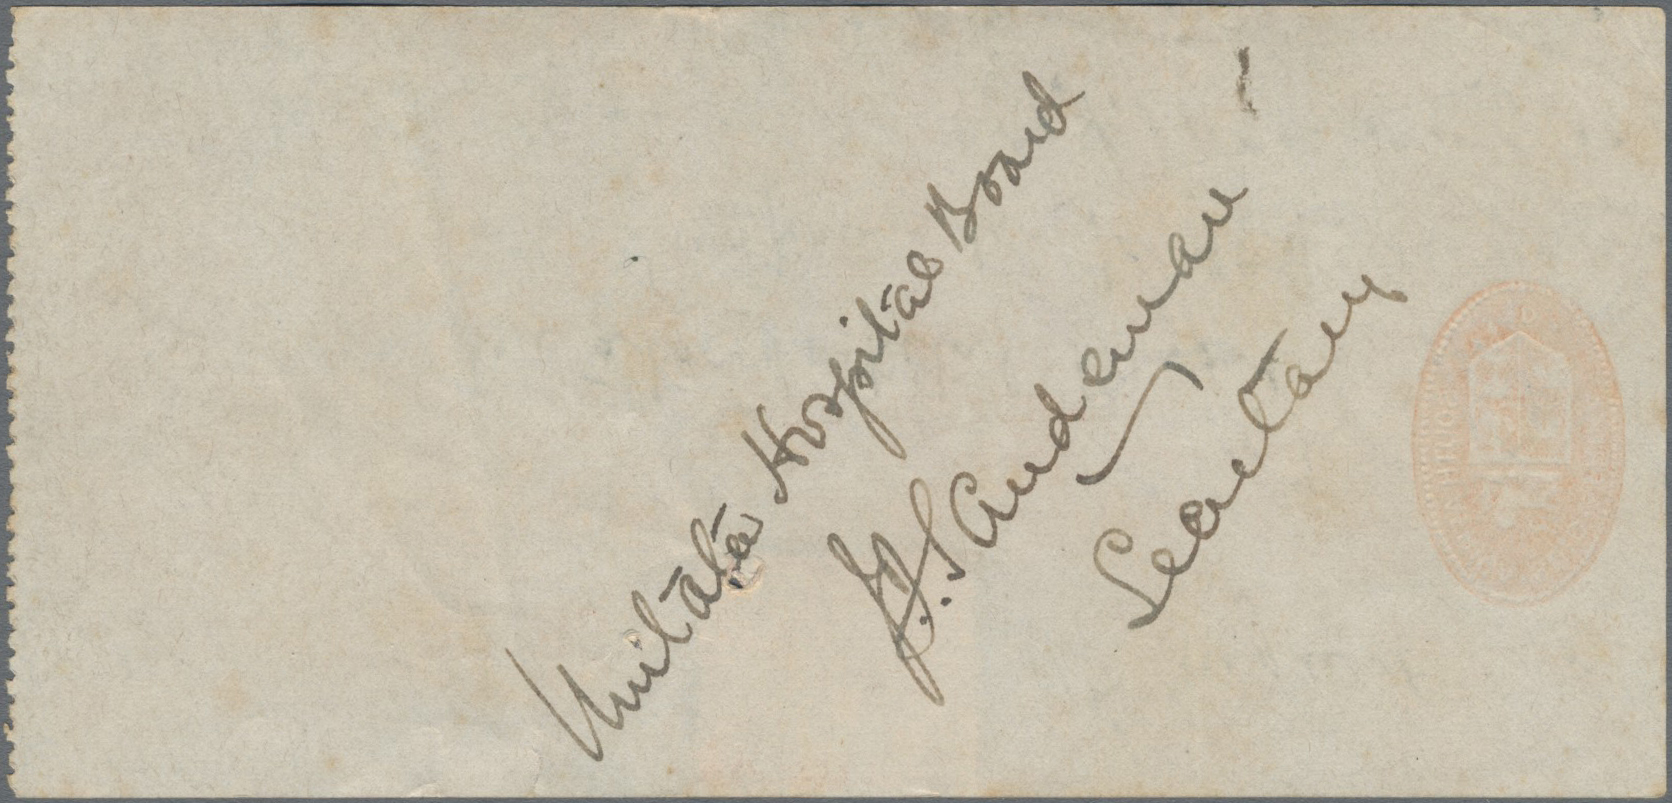 Umtata Hospital Board
Sandeman
Secretary